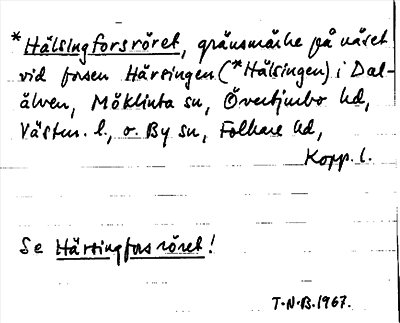 *Hälsingforsröret, gränsmärke på näset
vid forsen Härsingen (*Hälsingen) i Dal-
älven, Möklinta sn, Övertjurbo hd,
Västm. l., o. By sn, Folkare hd,
Kopp. l.
Se Härsingforsröret!
T.N.B. 1967.